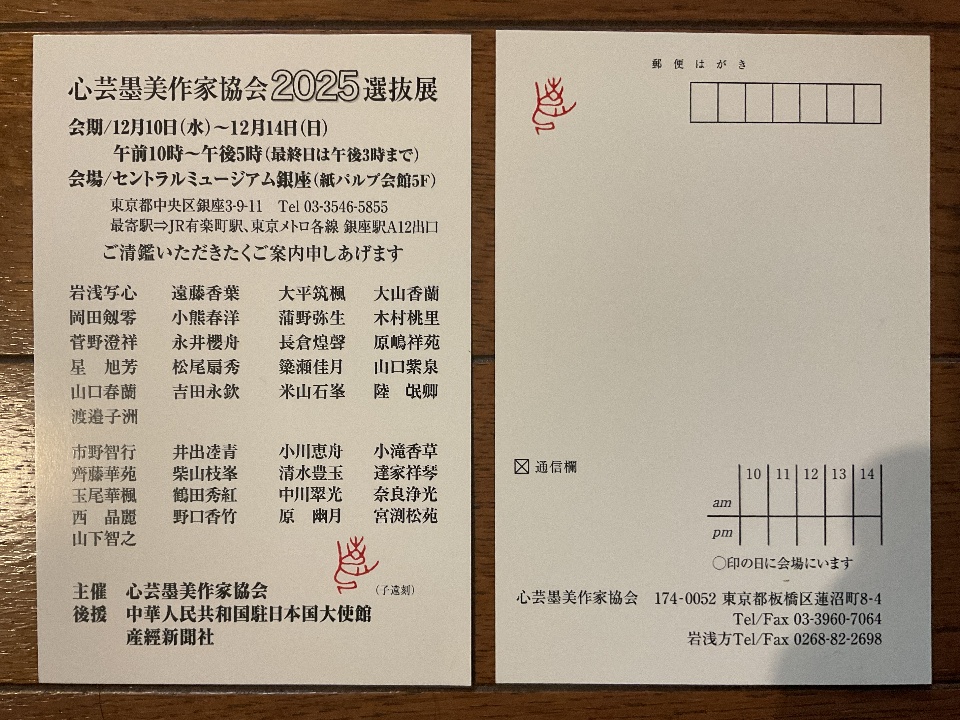 心芸墨美作家協会2025選抜展
会期/12月10日(水)～12月14日(日)
午前10時～午後5時(最終日は午後3時まで)
会場/セントラルミュージアム銀座(紙パルプ会館5F)
東京都中央区銀座3-9-11 Tel 03-3546-5855
最寄駅⇒JR有楽町駅、東京メトロ各線 銀座駅A12出口
ご清鑑いただきたくご案内申しあげます
岩浅写心 遠藤香葉 大平筑楓 大山香蘭
岡田剱零 小熊春洋 蒲野弥生 木村桃里
菅野澄祥 永井櫻舟 長倉煌聲 原嶋祥苑
星 旭芳 松尾扇秀 簗瀬佳月 山口紫泉
山口春蘭 吉田永欽 米山石峯 陸 氓卿
渡邉子洲
市野智行 井出逵青 小川恵舟 小滝香草
齊藤華苑 柴山枝峯 清水豊玉 達家祥琴
玉尾華楓 鶴田秀紅 中川翠光 奈良浄光
西 晶麗 野口香竹 原 幽月 宮渕松苑
山下智之
(子遠刻)
主催 心芸墨美作家協会
後援 中華人民共和国駐日本国大使館
産經新聞社
郵便はがき
通信欄
10 11 12 13 14
am
pm
○印の日に会場にいます
心芸墨美作家協会 174-0052 東京都板橋区蓮沼町8-4
Tel/Fax 03-3960-7064
岩浅方Tel/Fax 0268-82-2698